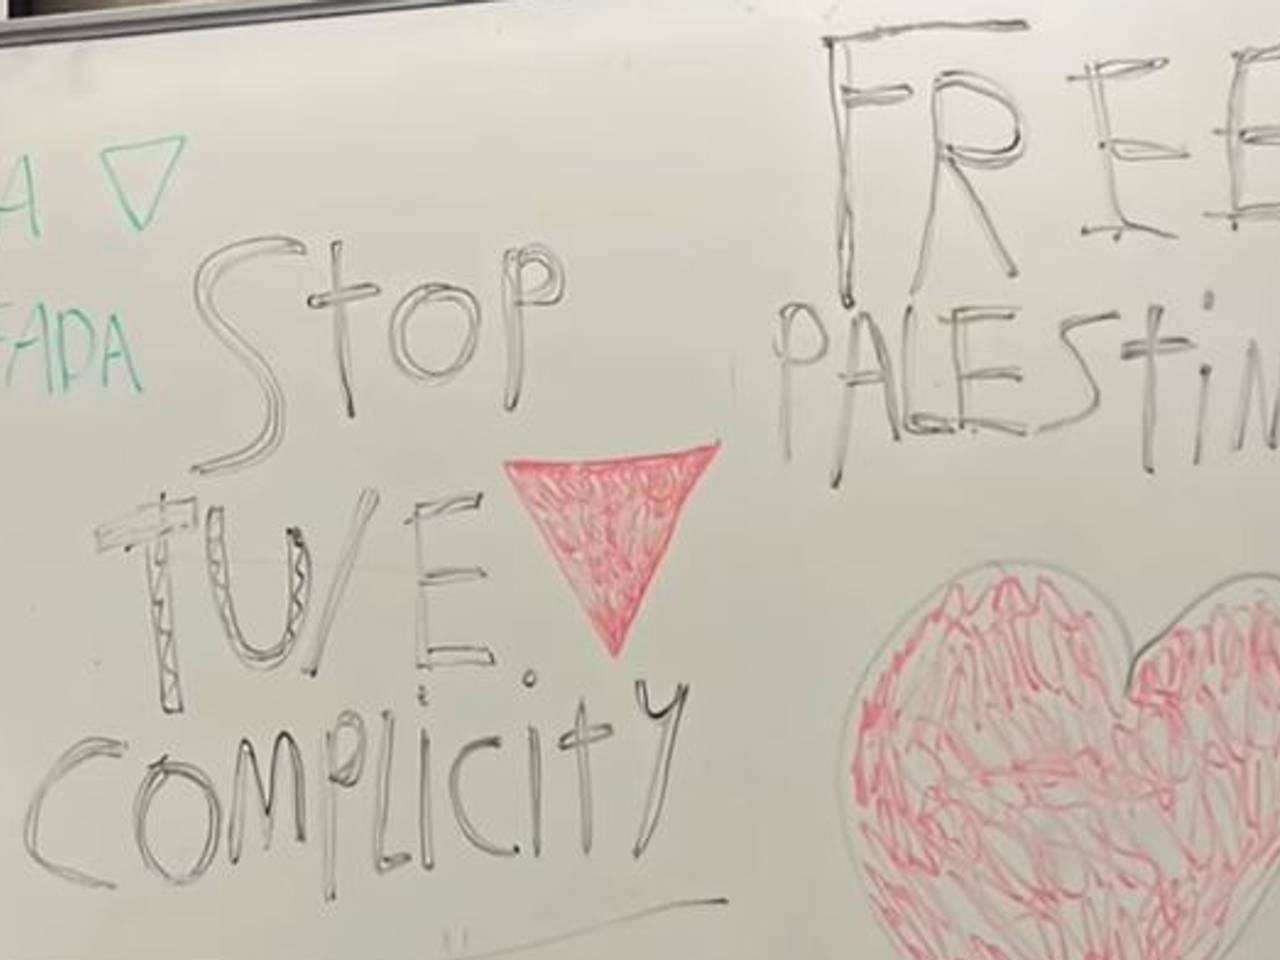 A
FADA
STOP
TU/E
COMPLiCiTY
FREE
PALESTiN